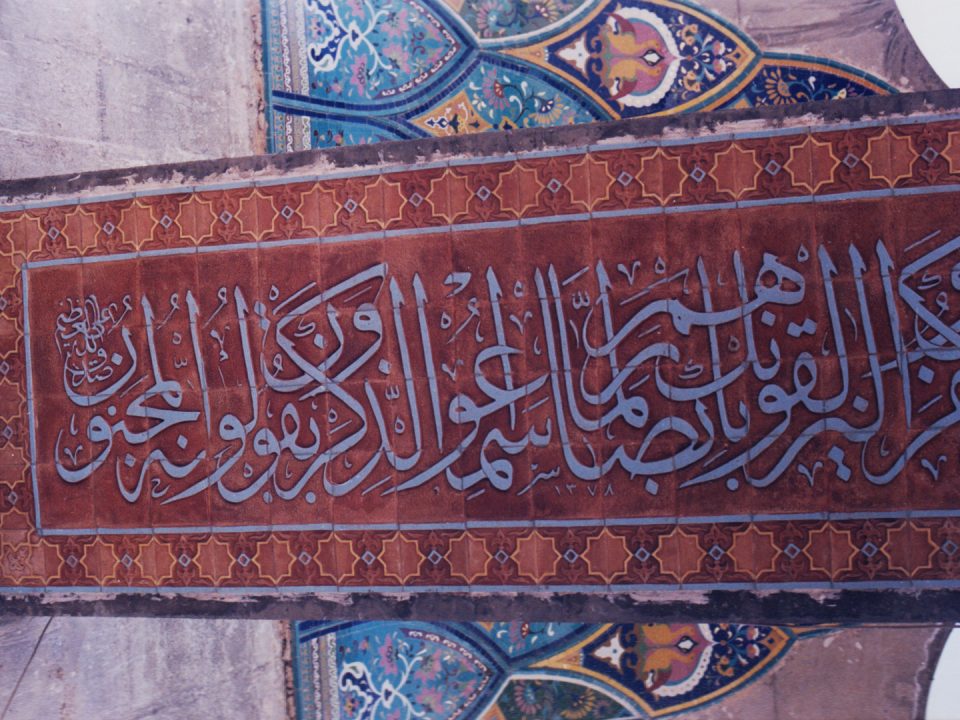 كفروا ليزلقونك بأبصارهم لما سمعوا الذكر ويقولون إنه لمجنون
صدق الله العلي العظيم
١٣٧٨